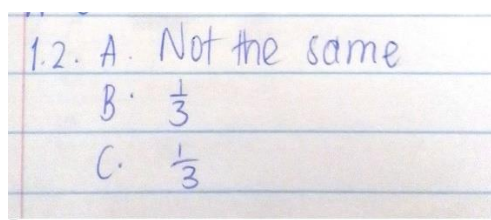 1.2. A. Not the same
B. 1/3
C. 1/3